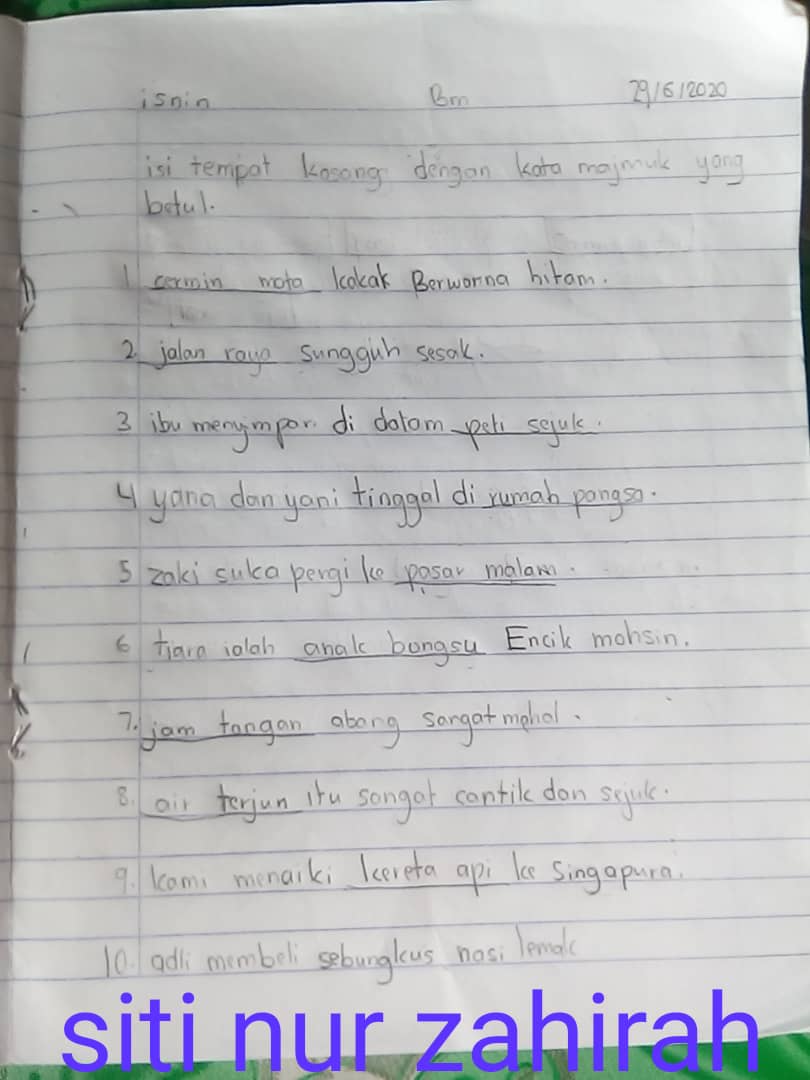 isnin Bm 29/6/2020
isi tempat kosong dengan kata majmuk yang
betul.
1 cermin mata kakak Berwarna hitam.
2. jalan raya sungguh sesak.
3 ibu menyimpan di dalam peti sejuk.
4 yana dan yani tinggal di rumah pangsa.
5 zaki suka pergi ke pasar malam.
6 tiara ialah anak bongsu Encik mohsin.
7. jam tangan abang sangat mahal.
8. air terjun itu sangat cantik dan sejuk.
9. kami menaiki kereta api ke Singapura.
10. adli membeli sebungkus nasi lemak
siti nur zahirah